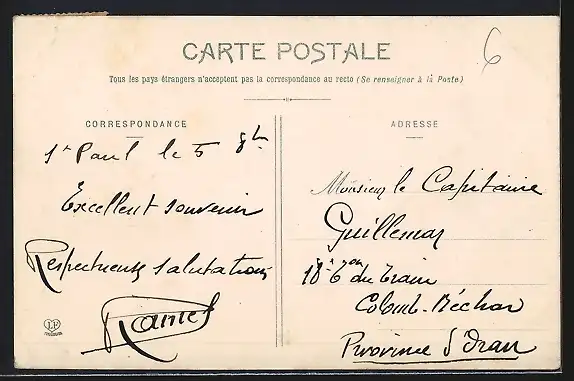 6
CARTE POSTALE
Tous les pays étrangers n'acceptent pas la correspondance au recto (Se renseigner à la Poste)
CORRESPONDANCE
St Paul le 5 8bre
Excellent souvenir
Respectueuses salutations
Ramel
LF
ADRESSE
Monsieur le Capitaine
Guillemar
18e Con du train
Colomb-Béchar
Province d'Oran